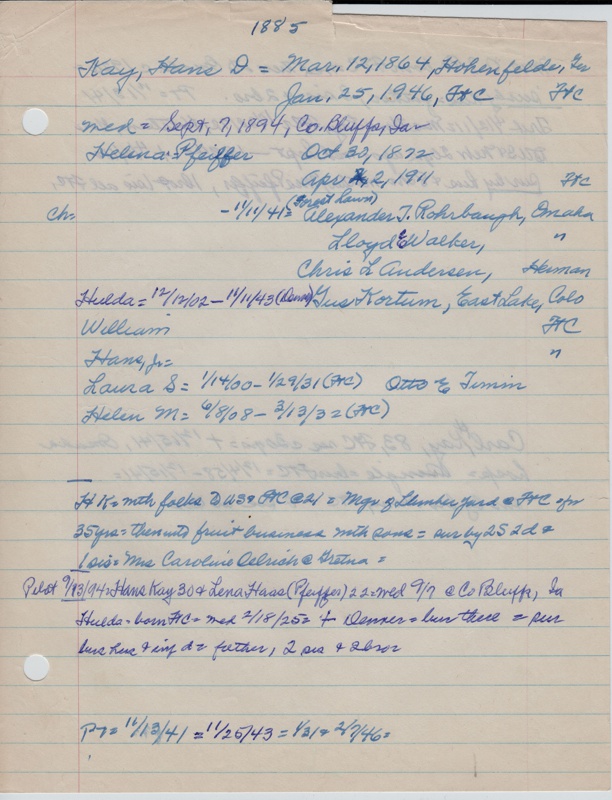 1885
Kay, Hans D = Mar. 12, 1864, Hohenfelde, Ger
Jan. 25, 1946, FtC FtC
med = Sept, 7, 1894, Co. Bluffs, Ia
Helena Pfeiffer Oct 30, 1872
Apr 2, 1911 FtC
(Forest Lawn)
Ch= - 11/11/41= Alexander T. Rohrbaugh, Omaha
Lloyd E Walker, "
Chris L Andersen, Herman
Hulda = 12/12/02 - 11/11/43 (Denv) Gus Kortum, East Lake, Colo
William FtC
Hans, Jr= "
Laura S = 1/14/00 - 1/29/31 (FtC) Otto E Timm
Helen M = 6/8/08 - 3/13/32 (FtC)
H K = with folks to US & FtC @ 21 = Mgr of Lumber yard @ FtC for
35 yrs = then into fruit business with sons = sur by 2S 2d &
1 sis = Mrs Caroline Oelrich @ Gretna =
Pilot 9/13/94 = Hans Kay 30 & Lena Haas (Pfeiffer) 22 = med 9/7 @ Co Bluffs, Ia
Hulda = born FtC = med 2/18/25 = + Denver = bur there = sur
hus & inf d = father, 2 sis & 2 bror
PT = 11/13/41 = 11/25/43 = 1/31 = 2/7/46 =